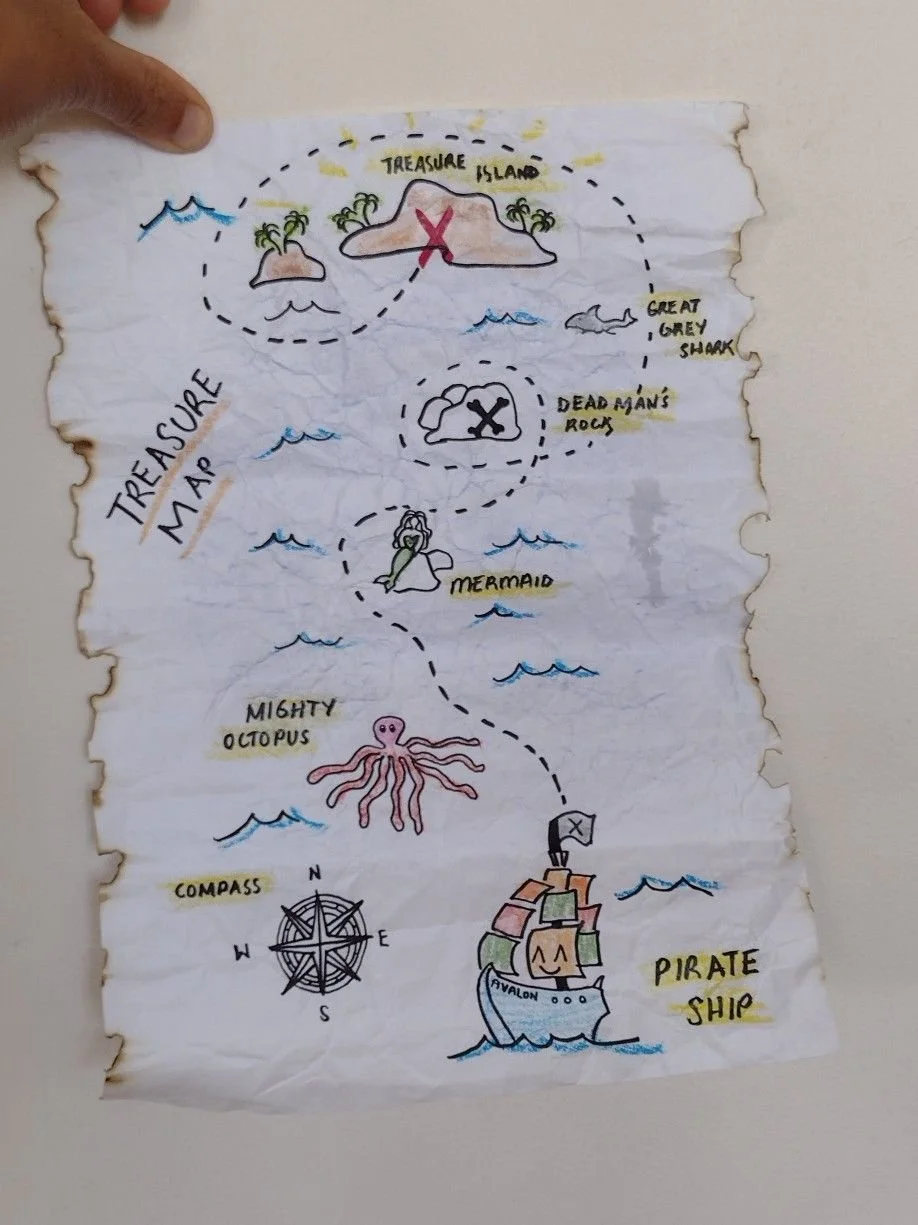 TREASURE ISLAND
GREAT
GREY
SHARK
DEAD MAN'S
ROCK
TREASURE
MAP
MERMAID
MIGHTY
OCTOPUS
COMPASS
N
W
E
S
AVALON
PIRATE
SHIP